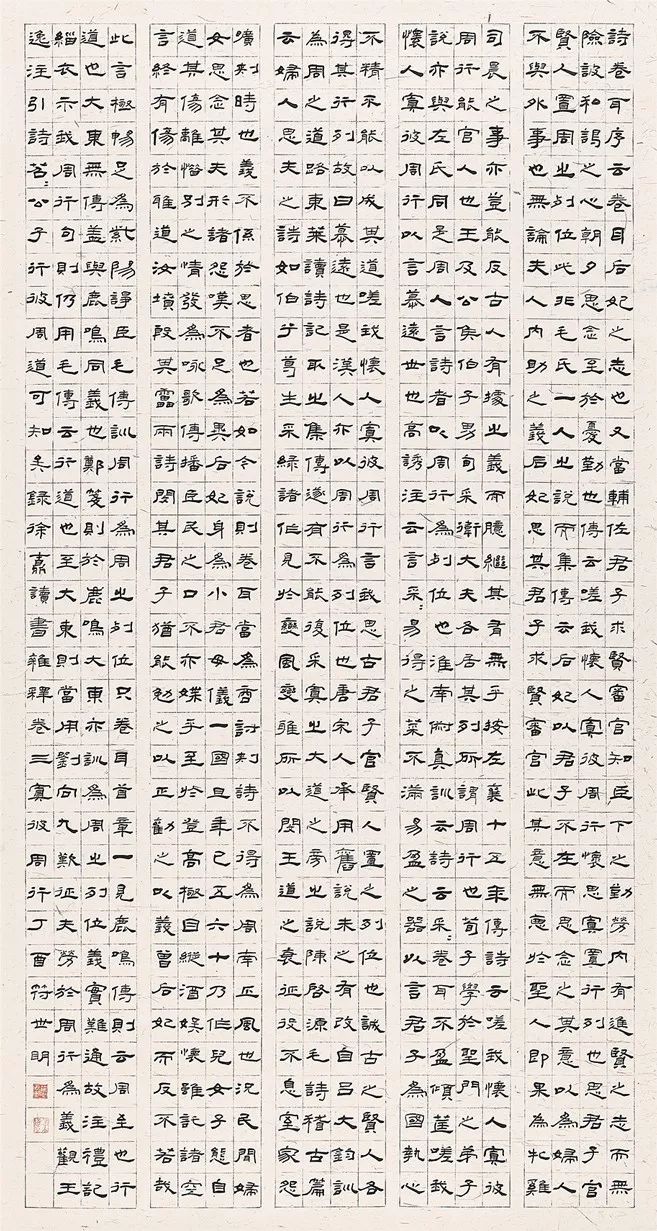 詩卷耳序云卷耳后妃之志也又當輔佐君子求賢審官知臣下之勤勞內有進賢之志而無
險詖私謁之心朝夕思念至於憂勤也傳云嗟我懷人寘彼周行懷思寘置行列也思君子官
賢人置周之列位此非毛氏一人之說而集傳云后妃以君子不在而思念之其意以為婦人
不與外事也無論夫人內助之義后妃思其君子求賢審官此其意無惡於聖人即果為牝雞
司晨之事亦豈能反古人有據之義而臆繼其無乎按左襄十五年傳詩云嗟我懷人寘彼
周行能官人也王及公侯伯子男甸采衛大夫各居其列所謂周行也荀子學於聖門之弟子
說亦與左氏同是周人言詩者以周行為列位也淮南俶真訓云詩云采〻卷耳不盈傾筐嗟我
懷人寘彼周行以言慕遠世也高誘注云言采〻易得之菜不滿易盈之器以言君子為國執心
不精不能以成其道嗟我懷人寘彼周行言我思古君子官賢人置之列位也誠古之賢人各
得其行列故曰慕遠也是漢人亦以周行為列位也唐宋人承用舊說未之有改自呂大鈞訓
為周之道路東萊讀詩記取之集傳遂有不能復采寘之大道之旁之說陳啓源毛詩稽古篇
云婦人思夫之詩如伯兮葛生采綠諸作見於變風變雅所以閔王道之衰征役不息室家怨
曠刺時也義不係於思者也若如今說則卷耳當為討刺詩不得為周南正風也況民間婦
女思念其夫形諸怨嘆不足為異后妃身為小君母儀一國且年已五六十乃作兒女子態自
道其傷離惜別之情發為咏歌傳播臣民之口不亦媟乎至於登高極目縱酒娛懷雖託諸空
言終有傷於雅道汝墳殷其靁兩詩閔其君子猶能勉之以正勸之以義曾后妃而反不若哉
此言極暢足為紫陽諍臣毛傳訓周行為周之列位只卷耳首章一見鹿鳴傳則云周至也行
道也大東無傳蓋與鹿鳴同義也鄭箋則於鹿鳴大東亦訓為周之列位義實難通故注禮記
緇衣示我周行句則仍用毛傳云行道也至大東則當用劉向九歎征夫勞於周行為義觀王
逸注引詩苕〻公子行彼周道可知矣錄徐鼒讀書雜釋卷三寘彼周行丁酉符世明